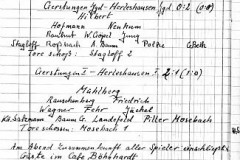 Gerstungen Jgd - Herleshausen Jgd. 0:2 (0:0)
Hilbert
Hofmann Neukum
Rauthut W. Göpel Jung
Stagloff Roßbach A. Baum Pothe G. Beth
Tore schoß: Stagloff 2
Gerstungen I - Herleshausen I 2:1 (1:0)
Mahlberg
Rauschenberg Friedrich
Wagner Fehr Jäckel
K.H. Salzmann Baum G. Landefeld Piller Mosebach
Tore schossen: Mosebach 1
Am Abend Zusammenkunft aller Spieler einschl.
Gäste im Cafe Böhnhardt